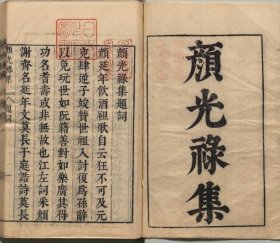 顔光祿集
顔光祿集題詞
顔延年飲酒祖歌自云狂不可及元
凶肆逆子竣贊世祖入討復爲孫辭
以免玩世如阮籍善對如樂廣其得
功名耆壽或非無故也江左詞采顔
謝齊名延年文莫長于庭誥詩莫長